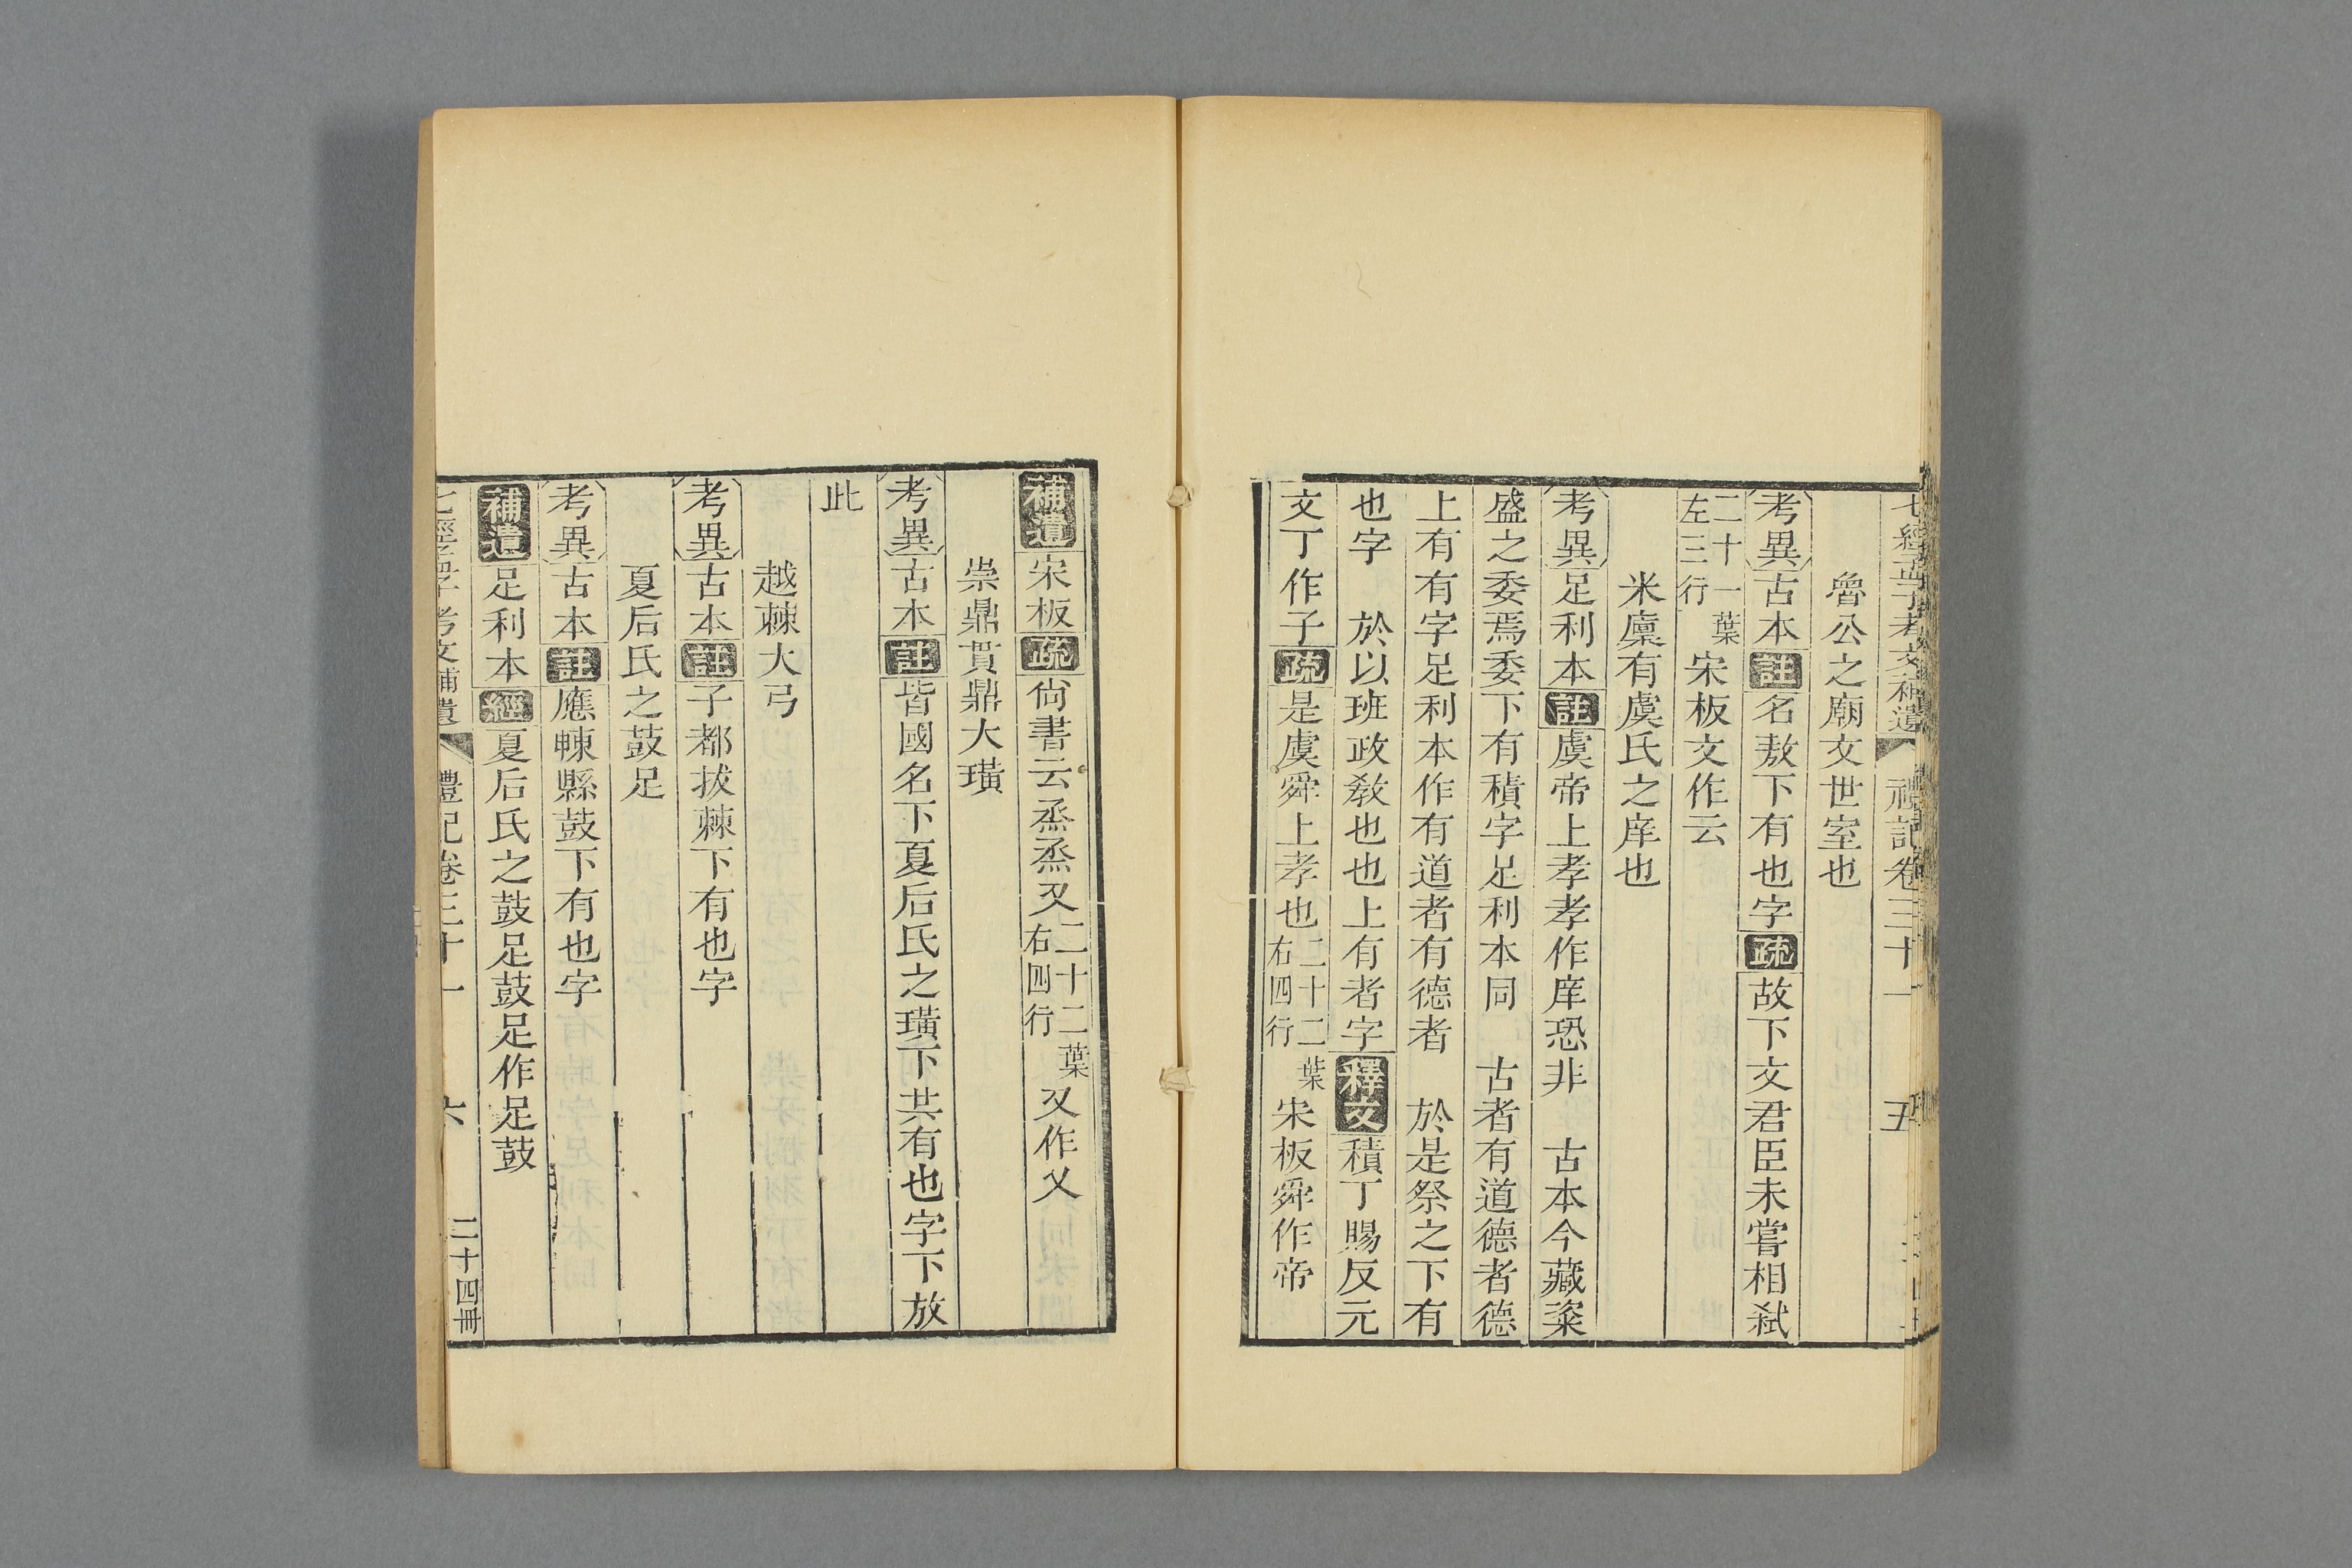 七經孟子考文補遺 禮記卷三十一 五
魯公之廟文世室也
考異古本註名敖下有也字疏故下文君臣未嘗相弑
二十一葉左三行宋板文作云
米廩有虞氏之庠也
考異足利本註虞帝上孝孝作庠恐非 古本今藏粢
盛之委焉委下有積字足利本同 古者有道德者德
上有有字足利本作有道者有德者 於是祭之下有
也字 於以班政敎也也上有者字釋文積丁賜反元
文丁作子疏是虞舜上孝也二十二葉右四行宋板舜作帝
補遺宋板疏尙書云烝烝㕛二十二葉右四行㕛作乂
崇鼎貫鼎大璜
考異古本註皆國名下夏后氏之璜下共有也字下放
此
越棘大弓
考異古本註子都拔棘下有也字
夏后氏之鼓足
考異古本註應朄縣鼓下有也字
補遺足利本經夏后氏之鼓足鼓足作足鼓
七經孟子考文補遺 禮記卷三十一 六 二十四冊